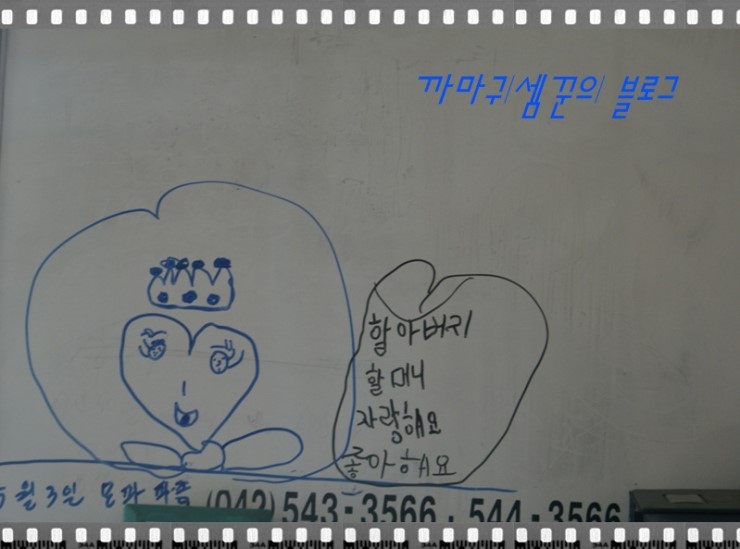 까마귀셈꾼의 블로그
할아버지
할머니
자랑해요
좋아해요
5월 3일
(042) 543-3566, 544-3566